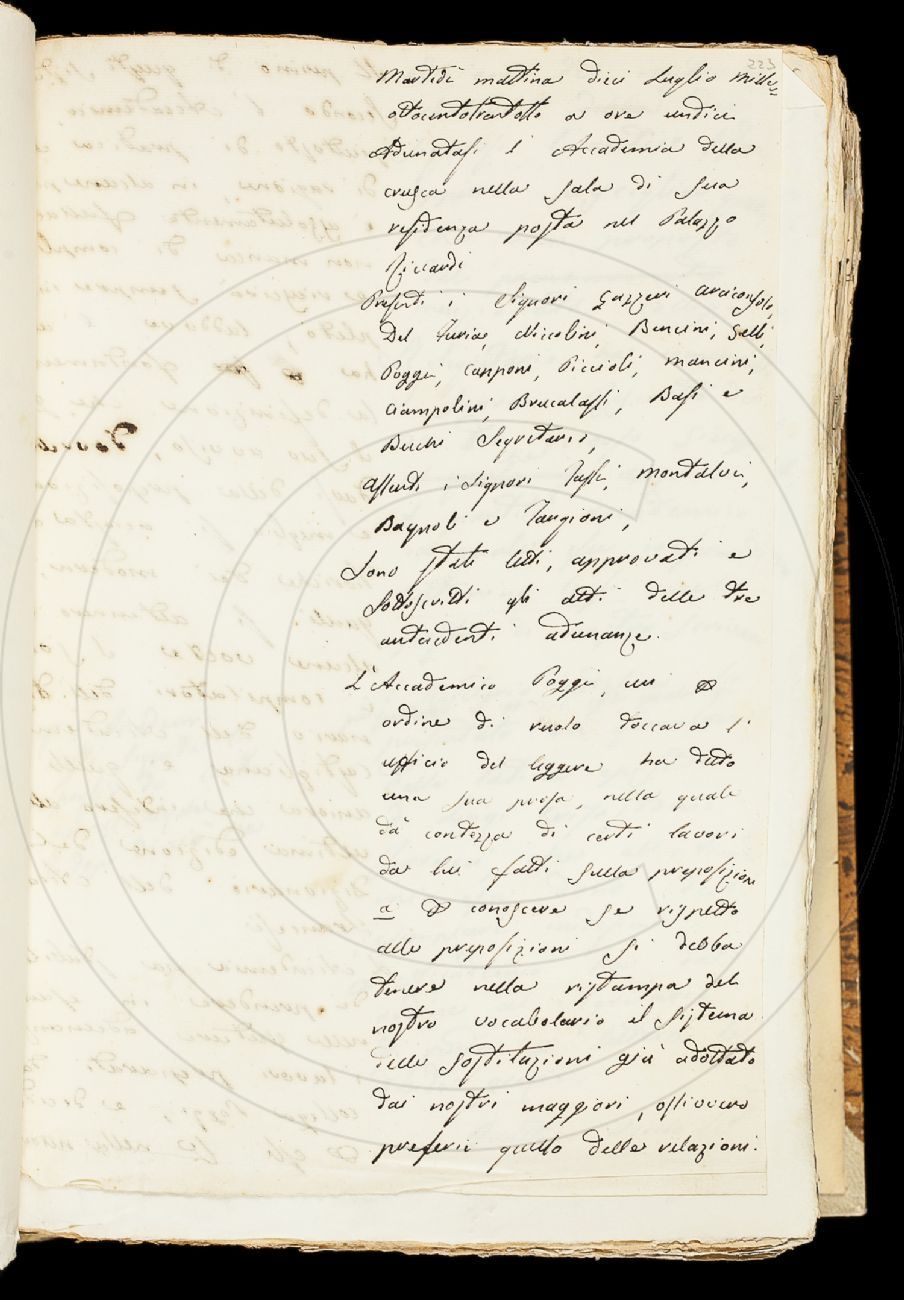 223
Martedì mattina dieci Luglio mille
ottocentotrentotto a ore undici
Adunatasi l'Accademia della
crusca nella sala di sua
residenza posta nel Palazzo
Riccardi
Presenti i Signori Gazzeri arciconsolo,
Del Furia, Niccolini, Bencini, Gelli,
Poggi, Capponi, Piccioli, Mancini,
Ciampolini, Brucalassi, Basi e
Becchi Segretario,
Assenti i Signori Tassi, Montalvi,
Bagnoli e Targioni,
Sono stati letti, approvati e
sottoscritti gli atti delle tre
antecedenti adunanze.
L'Accademico Poggi, cui
ordine di ruolo toccava l'
ufficio del leggere ha detto
una sua prosa, nella quale
dà contezza di certi lavori
da lui fatti sulla preposizione
a conoscere se rispetto
alle preposizioni si debba
tenere nella ristampa del
nostro vocabolario il sistema
delle sostituzioni già adottato
dai nostri maggiori, ossivvero
preferir quello delle relazioni.